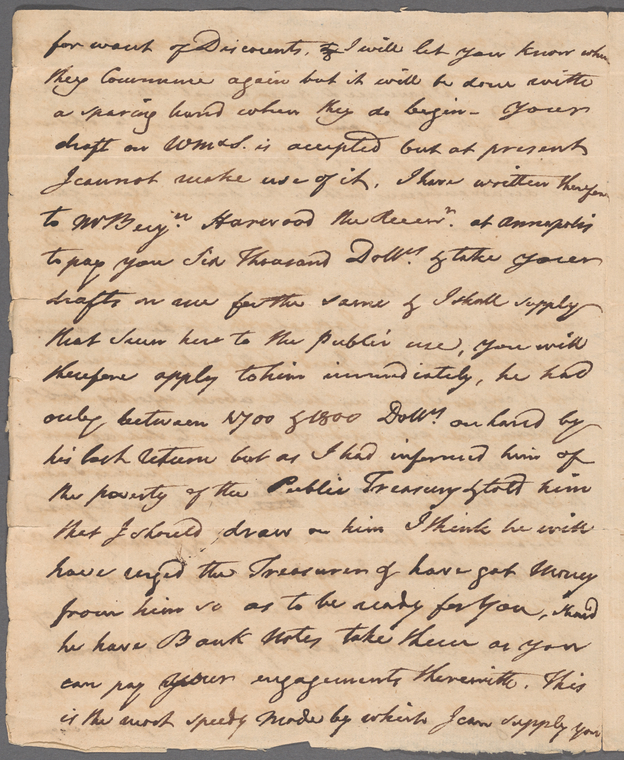 for want of Discounts. I will let you know when
they Commence again but it will be done with
a sparing hand when they do begin — Your
draft on WM&S. is accepted but at present
I cannot make use of it, I have written therefore
to Mr Benjn. Harwood the Receivr. at Annapolis
to pay you Six Thousand Dollrs. & take your
drafts on me for the same & I shall supply
that sum here to the Public use, you will
therefore apply to him immediately, he had
only between 1700 & 1800 Dollrs. on hand by
his last return but as I had informed him of
the poverty of the Public Treasury & told him
that I should draw on him I think he will
have urged the Treasurer & have got Money
from him so as to be ready for You, shoud
he have Bank Notes take them as you
can pay your engagements therewith. This
is the most speedy Mode by which I can supply you